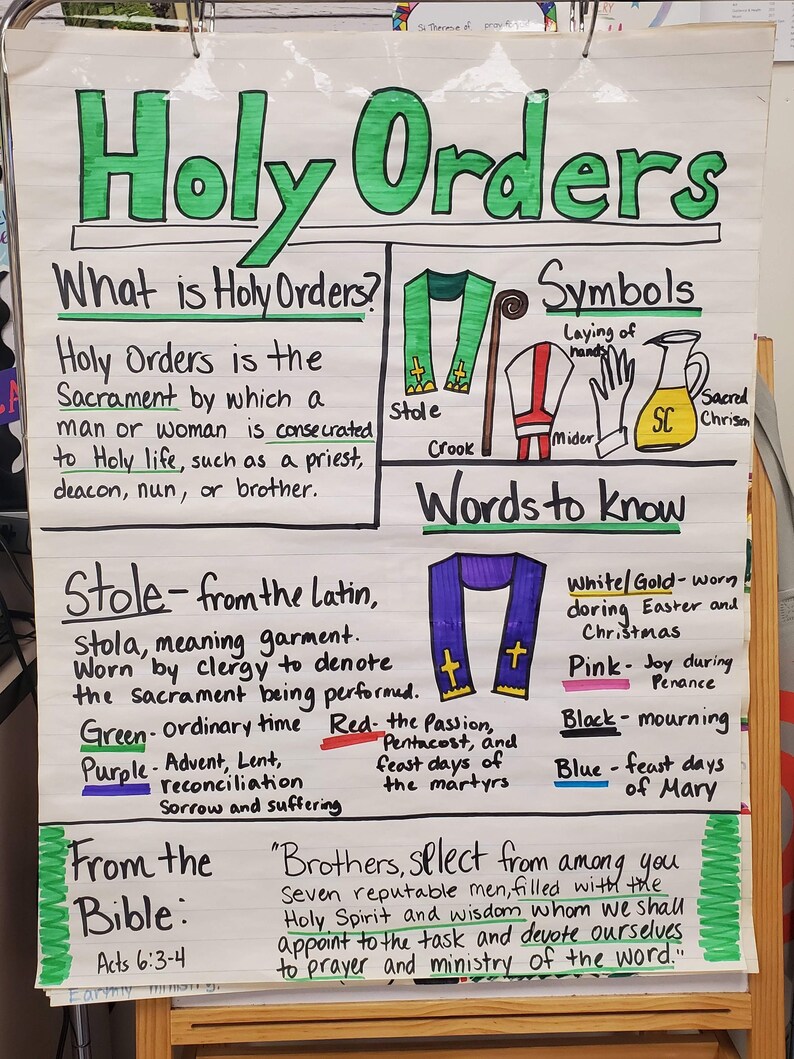 St Therese of, pray for
Holy Orders
What is Holy Orders?
Holy Orders is the
Sacrament by which a
man or woman is consecrated
to Holy life, such as a priest,
deacon, nun, or brother.
Symbols
Stole
Crook
Mider
Laying of
hands
SC
Sacred
Chrism
Words to know
Stole - from the Latin,
stola, meaning garment.
Worn by clergy to denote
the sacrament being performed.
Green - ordinary time
Purple - Advent, Lent,
reconciliation
Sorrow and suffering
Red - the Passion,
Pentacost, and
feast days of
the martyrs
White/Gold - worn
doring Easter and
Christmas
Pink - Joy during
Penance
Black - mourning
Blue - feast days
of Mary
From the
Bible:
Acts 6:3-4
"Brothers, select from among you
seven reputable men, filled with the
Holy Spirit and wisdom whom we shall
appoint to the task and devote ourselves
to prayer and ministry of the word."
Earthly ministry.